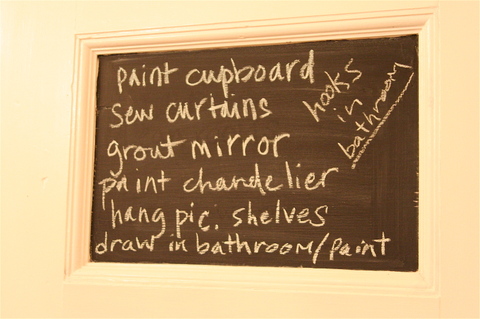 paint cupboard
sew curtains
grout mirror
paint chandelier
hang pic. shelves
draw in bathroom/paint
hooks
in
bathroom